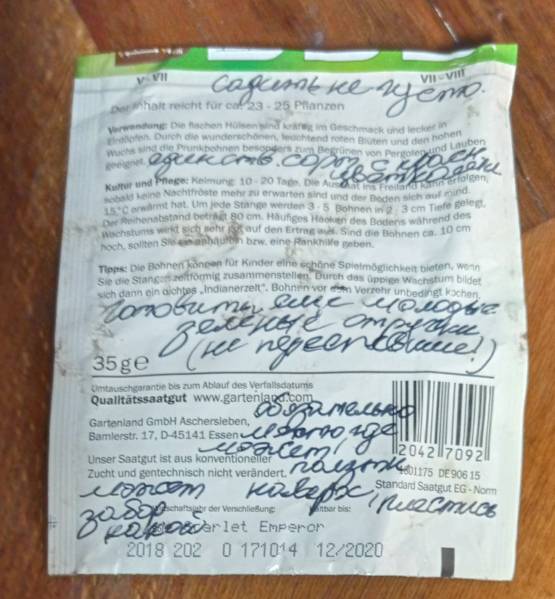 V-VII VII-VIII
садить не густо.
Der Inhalt reicht für ca. 23 - 25 Pflanzen
Verwendung: Die flachen Hülsen sind kräftig im Geschmack und lecker in
Eintöpfen. Durch die wunderschönen, leuchtend roten Blüten und den hohen
Wuchs sind die Prunkbohnen besonders zum Begrünen von Pergolen und Lauben
geeignet.
единств. сорт с красн.
цветками
Kultur und Pflege: Keimung: 10 - 20 Tage. Die Aussaat ins Freiland kann erfolgen,
sobald keine Nachtfröste mehr zu erwarten sind und der Boden sich auf mind.
15°C erwärmt hat. Um jede Stange werden 3 - 5 Bohnen in 2 - 3 cm Tiefe gelegt.
Der Reihenabstand beträgt 80 cm. Häufiges Hacken des Bodens während des
Wachstums wirkt sich sehr gut auf den Ertrag aus. Sind die Bohnen ca. 10 cm
hoch, sollten Sie sie anhäufeln bzw. eine Rankhilfe geben.
Tipps: Die Bohnen können für Kinder eine schöne Spielmöglichkeit bieten, wenn
Sie die Stangen zeltförmig zusammenstellen. Durch das üppige Wachstum bildet
sich dann ein dichtes „Indianerzelt". Bohnen vor dem Verzehr unbedingt kochen.
Готовить еще молодые
зеленые стручки
(не переспевшие!)
35g e
Umtauschgarantie bis zum Ablauf des Verfallsdatums
Qualitätssaatgut www.gartenland.com
обязательно
Gartenland GmbH Aschersleben,
Bamlerstr. 17, D-45141 Essen
место где
может
2042 7092
Unser Saatgut ist aus konventioneller
Zucht und gentechnisch nicht verändert.
ползти
4801175 DE 906 15
Standard Saatgut EG - Norm
может наверх,
забор
Wirtschaftsjahr der Verschließung: Haltbar bis:
Scarlet Emperor
2018 202 0 171014 12/2020